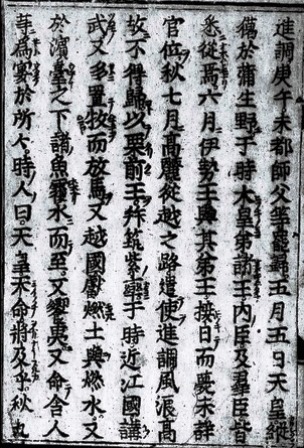 進調庚午未都師父等罷歸五月五日天皇縱
獦於蒲生野于時大皇弟諸王內臣及羣臣皆
悉從焉六月伊勢王與其弟王接日而薨未詳
官位秋七月高麗從越之路遣使進調風浪高
故不得歸以栗前王拜筑紫率于時近江國講
武又多置牧而放馬又越國獻燃土與燃水又
於濱臺之下諸魚覆水而至又饗夷又命舍人
等爲宴於所々時人曰天皇天命將及乎秋九